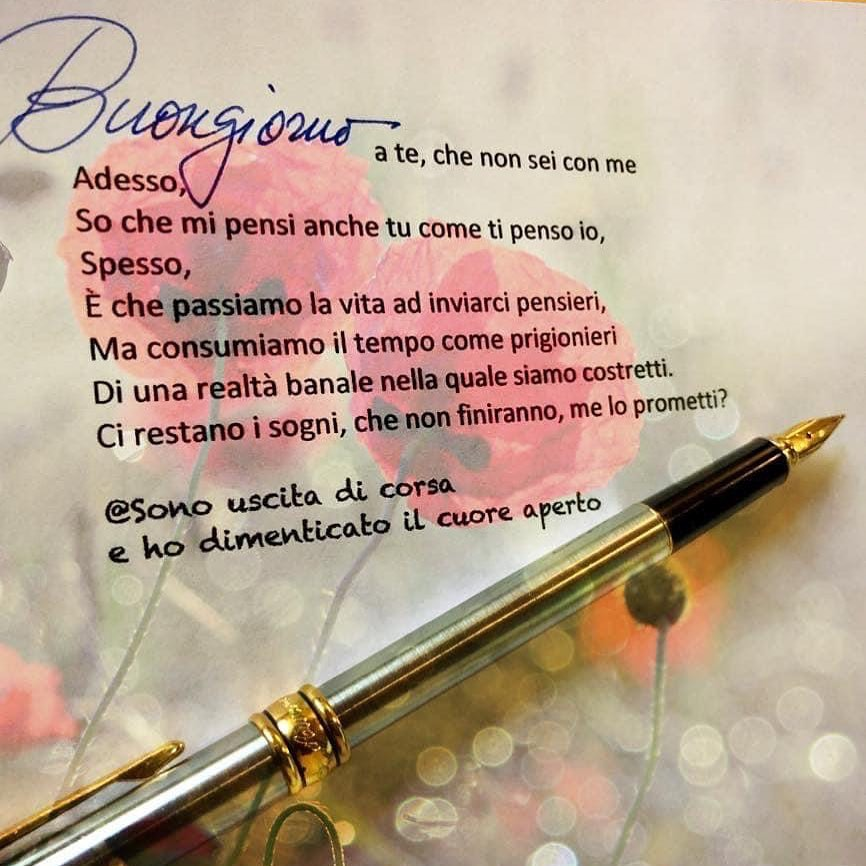 Buongiorno a te, che non sei con me
Adesso,
So che mi pensi anche tu come ti penso io,
Spesso,
È che passiamo la vita ad inviarci pensieri,
Ma consumiamo il tempo come prigionieri
Di una realtà banale nella quale siamo costretti.
Ci restano i sogni, che non finiranno, me lo prometti?
@Sono uscita di corsa
e ho dimenticato il cuore aperto